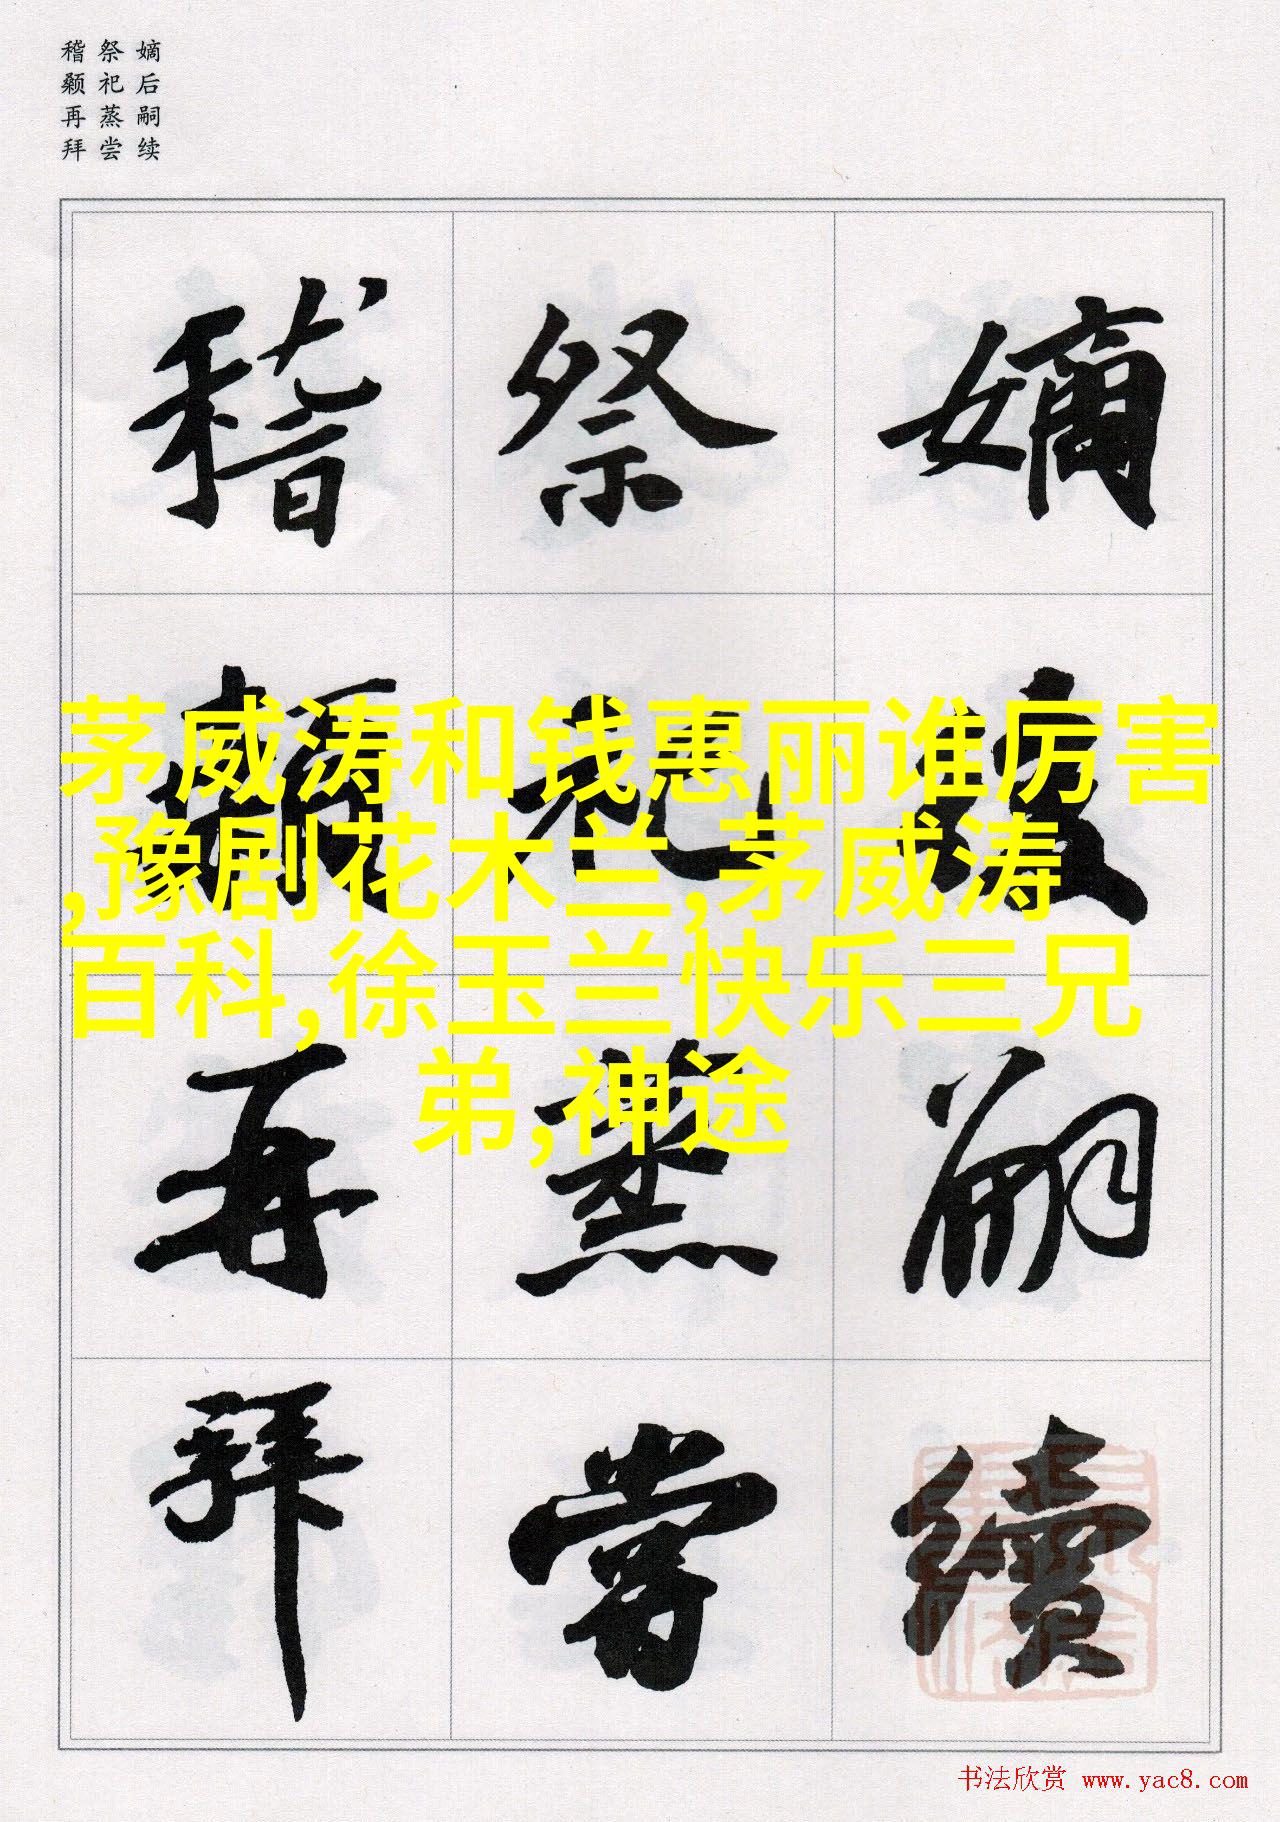 嫡后嗣续
祭祀蒸尝
稽颡再拜
嫡後嗣續
祭祀蒸嘗
稽顙再拜
茅威涛和钱惠丽谁厉害
,豫剧花木兰,茅威涛
百科,徐玉兰快乐三兄
弟,神途
书法欣赏 www.yac8.com